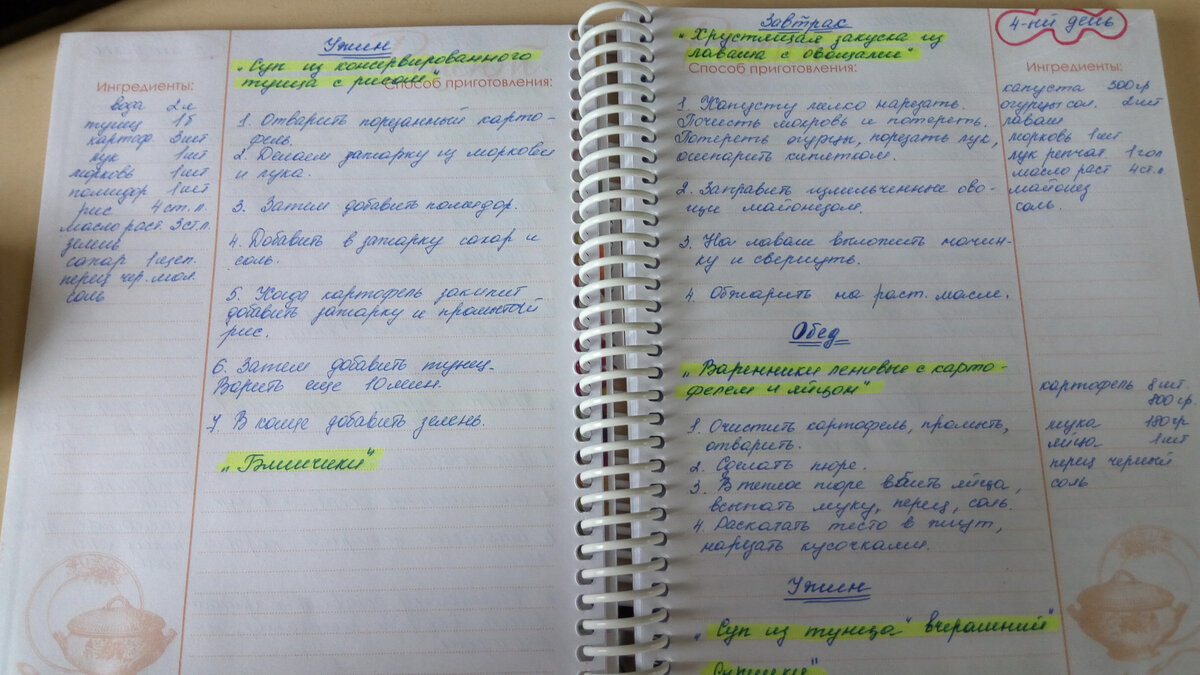 Ужин
„Суп из консервированного
тунца с рисом"
Ингредиенты:
Способ приготовления:
вода 2л
тунец 1б
картоф. 3шт
лук 1шт
морковь 1шт
помидор 1шт
рис 4 ст.л.
масло раст. 3ст.л.
зелень
сахар 1щеп.
перец чер. мол.
соль
1. Отварить порезанный карто-
фель.
2. Делаем зажарку из моркови
и лука.
3. Затем добавить помидор.
4. Добавить в зажарку сахар и
соль.
5. Когда картофель закипит
добавить зажарку и промытый
рис.
6. Затем добавить тунец.
Варить еще 10мин.
7. В конце добавить зелень.
„Блинчики"
Завтрак
4-ый день
„Хрустящая закуска из
лаваша с овощами"
Способ приготовления:
Ингредиенты:
1. Капусту мелко нарезать.
Почисть морковь и потереть.
Потереть огурцы, порезать лук,
ошпарить кипятком.
2. Заправить измельченные ово-
щи майонезом.
3. На лаваш выложить начин-
ку и свернуть.
4. Обжарить на раст. масле.
капуста 300гр
огурцы сол. 2шт
лаваш
морковь 1шт
лук репчат. 1гол
масло раст 4ст.л
майонез
соль.
Обед
„Варенники ленивые с карто-
фелем и яйцом"
1. Очистить картофель, промыть,
отварить.
2. Сделать пюре.
3. В теплое пюре вбить яйца,
всыпать муку, перец, соль.
4. Раскатать тесто в жгут,
нарезать кусочками.
картофель 8шт.
800гр.
мука 180гр
яйца 1шт
перец черный
соль
Ужин
„Суп из тунца" вчерашний"